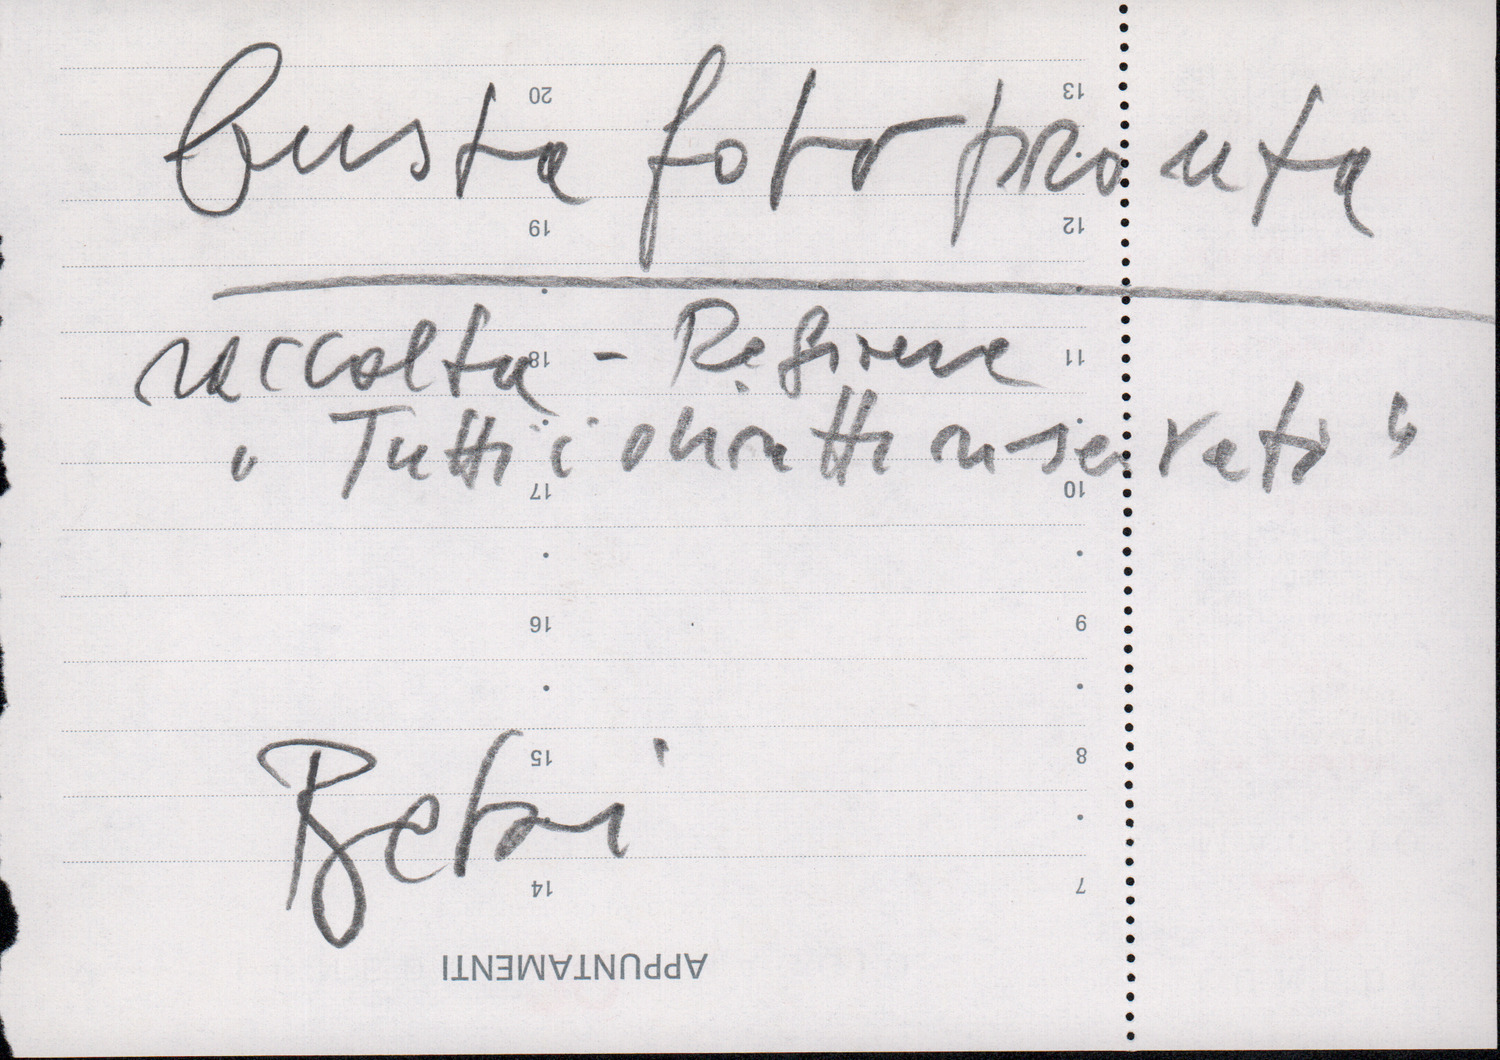 busta foto pronta
raccolta - Regione
"Tutti i diritti riservati"
20 13
19 12
18 11
17 10
16 9
15 8
14 7
APPUNTAMENTI